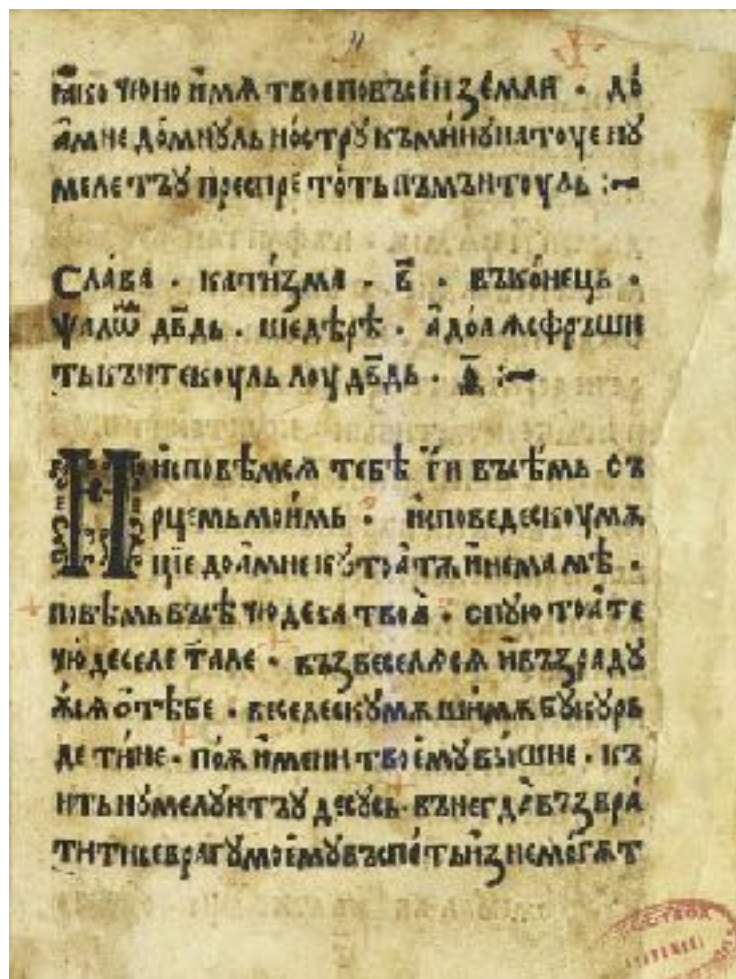 ꙗко чюдно имѧ твое повъсеи земли · до
амне домнуль ностру къ минунат оу е ну
меле тъу преспре тоть пъмънтоуль :~
Слава · катизма · в҃ · въконець ·
Ѱалѡⷨ дв҃дь · шедѣрѣ · адоа ѫсфръши
ть кънтекоуль лоу дв҃дь · ѳ҃ :~
Исповѣмсѧ тебѣ г҃и вьсѣмь съ
рцемь моимь · исповедескоумѫ
цїе доамне ку тоатѫ инема мѣ ·
повѣмь вьсѣ чюдеса твоꙗ · спую тоате
чюдеселе тале · възвеселѧсѧ ивъзраду
ѫсѧ ѡ тебе · веселескумѫ шимѫ букурь
де тине · поѫ имени твоему вышне · къ
нть нумелуи тъу десусь · вънегда възвра
титисе врагу моему въспѧть изнемогѫт